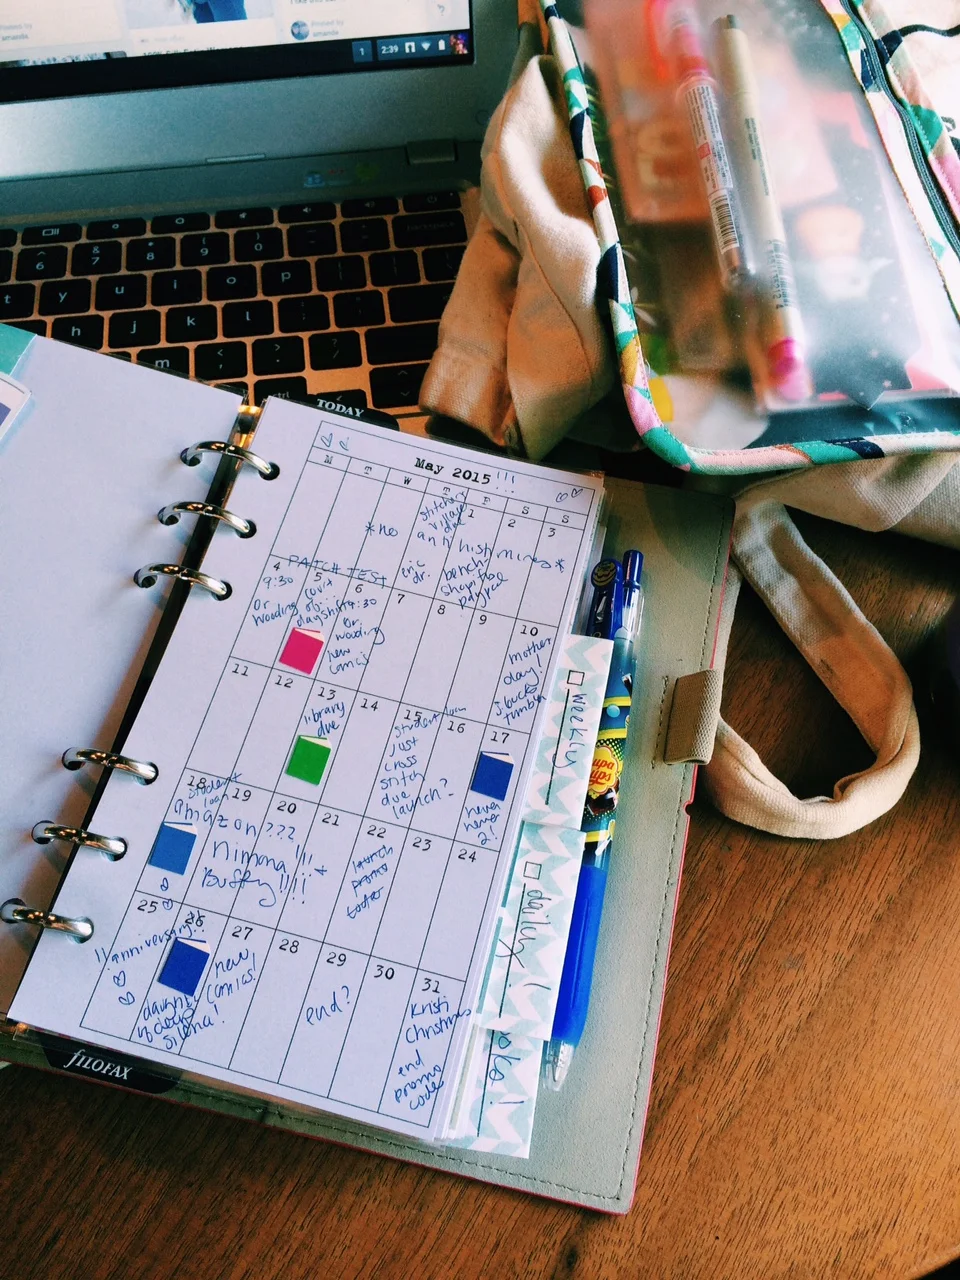 Pinned by
amanda
1 2:39
backspace
6 7 8 9 0
t y u i o p
h j k l
m < >
ctrl
TODAY
May 2015!!!
M T W T F S S
stitches
village
due
1 2 3
*no
anthishmines*
bench
shopify
paypal
4 5 6 7 8 9 10
PATCH TEST
9:30
Dr.
Wooding
dayshift
9:30
Dr.
Wooding
new
comics
mother
day!
11 12 13 14 15 16 17
library
due
student loan
last
cross
stitch
due
launch?
never
never
2!
18 19 20 21 22 23 24
student
loan
amazon???
Nimona!!!
Buffy!!!!
launch
promo
25 26 27 28 29 30 31
!!anniversary!!
new
comics!
end?
Kristi
Christmas
end
promo
code
weekly
daily
Chupa
Chups
fILOFAX